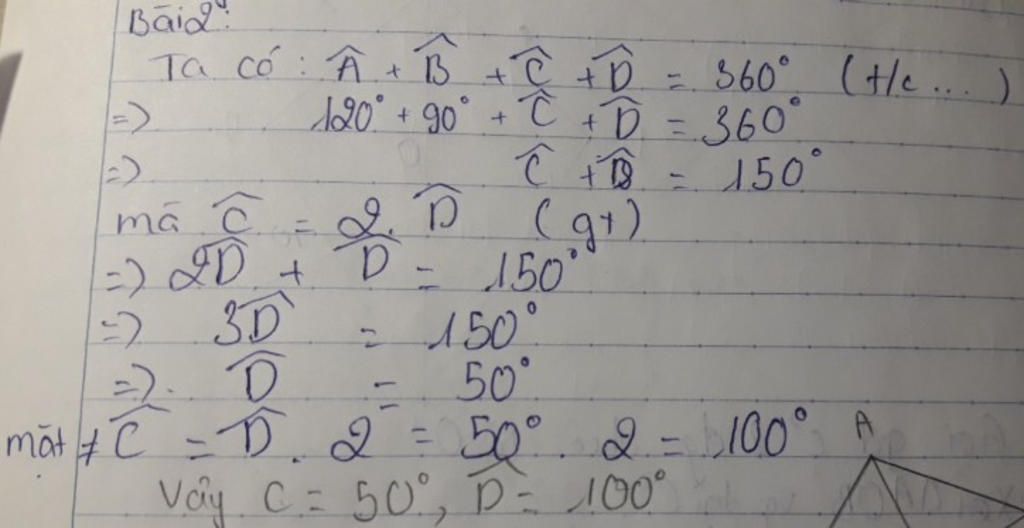 Bài 2:
Ta có: Â + B̂ + Ĉ + D̂ = 360° (t/c ...)
=> 120° + 90° + Ĉ + D̂ = 360°
=> Ĉ + D̂ = 150°
mà Ĉ = 2. D̂ (gt)
=> 2D̂ + D̂ = 150°
=> 3D̂ = 150°
=> D̂ = 50°
mặt ≠ Ĉ = D̂ . 2 = 50° . 2 = 100°
Vậy C = 50°, D̂ = 100°
A